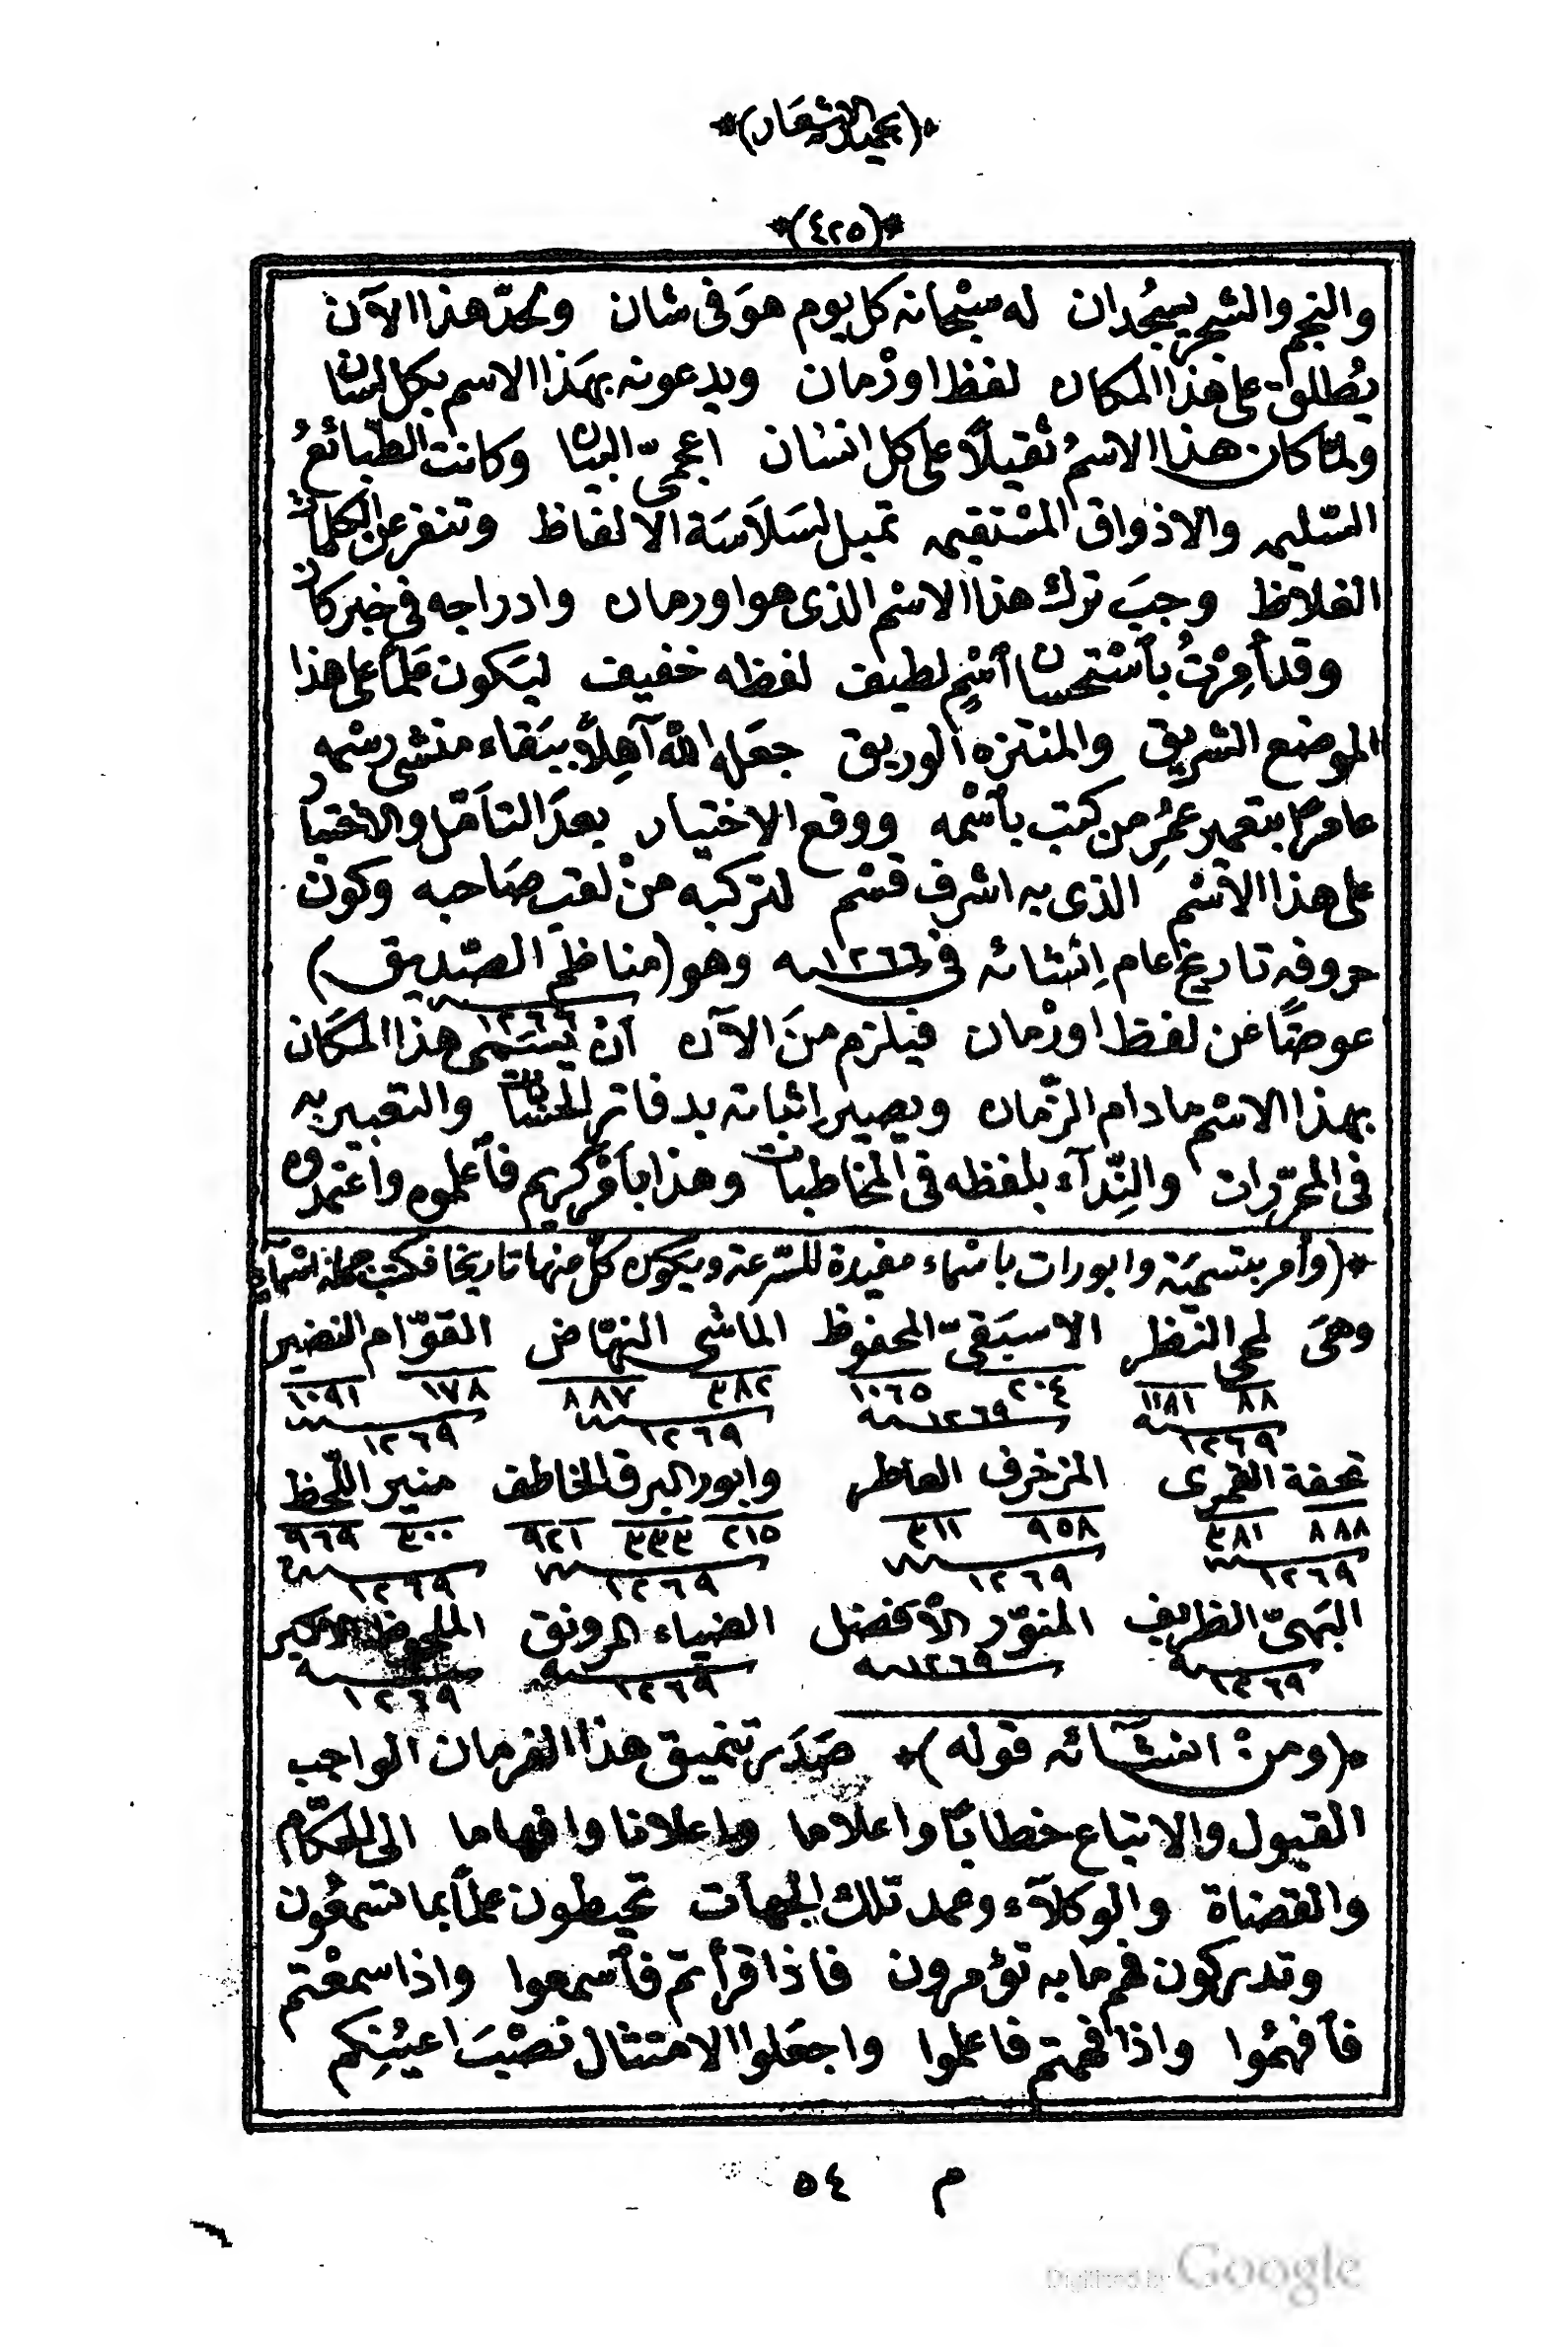 ﴿بحميد الاشعار﴾
*(٤٢٥)*
والنجم والشجر يسجُدان له سبْحانه كل يوم هوَ فى شان ولحدّ هذا الآن
يُطلق على هذا المكان لفظ اوزْمان ويدعونه بهَذا الاسم بكل لسان
ولمّا كان هذا الاسمُ ثقيلاً على كل انسان اعجمىّ البيان وكانت الطّبائعُ
السّليمه والاذواق المسْتقيمه تميل لسَلاَسَة الالفاظ وتنفر عن الكلمات
الغلاظ وجبَ ترك هذا الاسْم الذى هو اوزمان وادراجه فى خبر كان
وقد أمِرْتُ بٱسْتحسان ٱسْمٍ لطيف لفظه خفيف ليَكون عَلماً على هذا
الموضع الشريق والمنتزه الوريق جعَله الله آهِلاً ببَقاء منشى رسْمه
عامرًا بتعمير عمُرِ من كتب بٱسْمه ووقع الاختيار بعدَ التأمّل والاختيار
على هذا الاسْم الذى به اشرف قسْم لتركبه منْ لقب صَاحبه وكون
حروفه تاريخ اعام اِنْشائه فى ١٢٦٦ سه وهو (مناظم الصّديق)
١٢٦٦
عوضًا عن لفظ اوزْمان فيلزم منَ الآن انْ يسَمى هذا المكَان
بهذا الاسْم مادام الزّمان ويصير اثباته بدفاتر الحسْاب والتعبير به
فى المحرّرات والنِّدآء بلفظه فى المخاطبات وهذا بأمْر كريم فٱعلموه واعْتمدوه
*(وأمر بتسميَة وابورات باسْماء مفيدة للسّرعة ويكون كلّ منها تاريخا فكتب جملة اسْماء
وهىَ لمحى النظر الاسبَقىّ المحفوظ الماشى النهّاض القوّام النضير
٨٨ ١١٨١ ٢٠٤ ١٠٦٥ ٣٨٢ ٨٨٧ ١٧٨ ١٠٩١
١٢٦٩ ١٢٦٩ ١٢٦٩ ١٢٦٩
تحفة القمرى المزخرف العاطر وابور البرق الخاطف منير اللّحظ
٨٨٨ ٣٨١ ٩٥٨ ٣١١ ٢١٥ ٣٣٣ ٩٢١ ٣٠٠ ٩٦٩
١٢٦٩ ١٢٦٩ ١٢٦٩ ١٢٦٩
البَهىّ الظريف المنوّر الأفضل الضياء الرونق الملحوظ
١٢٦٩ ١٢٦٩ ١٢٦٩ ١٢٦٩
*(ومنْ انشآئه قوله)* صَدَر تنميق هذا الفرمان الواجب
القبول والاتباع خطاباً واعلاما واعلانا وافهاما الى الحكّام
والقضاة والوكلآء وعمد تلك الجهات تحيطون علماً بما تسمعُون
وتدركون فهم ما به تؤمرون فاذا قرأتم فٱسمعوا واذا سمعْتم
فٱفهمُوا واذا فهمتم فاعلموا واجعَلوا الامتثال نصْبَ اعيُنِكم
م ٥٤
Digitized by Google